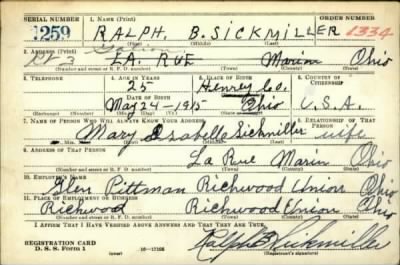 SERIAL NUMBER 1. NAME (Print)
1259 RALPH. B. SICKMILLER 1334
(First) (Middle) (Last)
2. ADDRESS (Print)
Rt 3 LA. RUE Marion Ohio
(Number and street or R. F. D. number) (Town) (County) (State)
3. TELEPHONE 4. AGE IN YEARS 5. PLACE OF BIRTH 6. COUNTRY OF CITIZENSHIP
25 Henry Co.
DATE OF BIRTH (Town or county)
May 24-1915 Ohio U.S.A.
(Exchange) (Number) (Mo.) (Day) (Yr.) (State or country)
7. NAME OF PERSON WHO WILL ALWAYS KNOW YOUR ADDRESS 8. RELATIONSHIP OF THAT PERSON
Mary Isabelle Sickmiller wife
(Mr., Mrs., Miss) (First) (Middle) (Last)
9. ADDRESS OF THAT PERSON
La Rue Marion Ohio
(Number and street or R. F. D. number) (Town) (County) (State)
10. EMPLOYER'S NAME
Glen Pittman Richwood Union Ohio
11. PLACE OF EMPLOYMENT OR BUSINESS
Richwood Richwood Union Ohio
(Number and street or R. F. D. number) (Town) (County) (State)
I AFFIRM THAT I HAVE VERIFIED ABOVE ANSWERS AND THAT THEY ARE TRUE.
REGISTRATION CARD
D. S. S. Form 1 (over) Ralph B Sickmiller
(Registrant's signature)